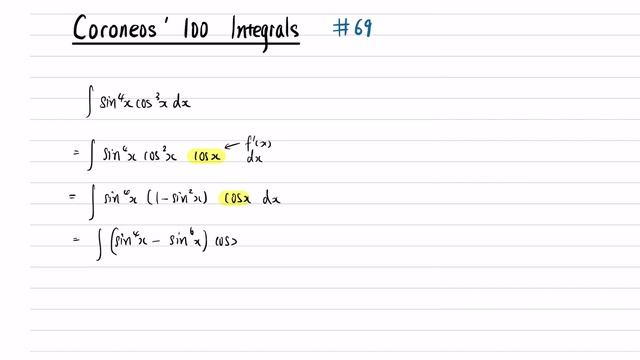 Coroneos' 100 Integrals #69
∫ sin⁴x cos³x dx
= ∫ sin⁴x cos²x cosx dx ← f'(x)
= ∫ sin⁴x (1 - sin²x) cosx dx
= ∫ (sin⁴x - sin⁶x) cosx